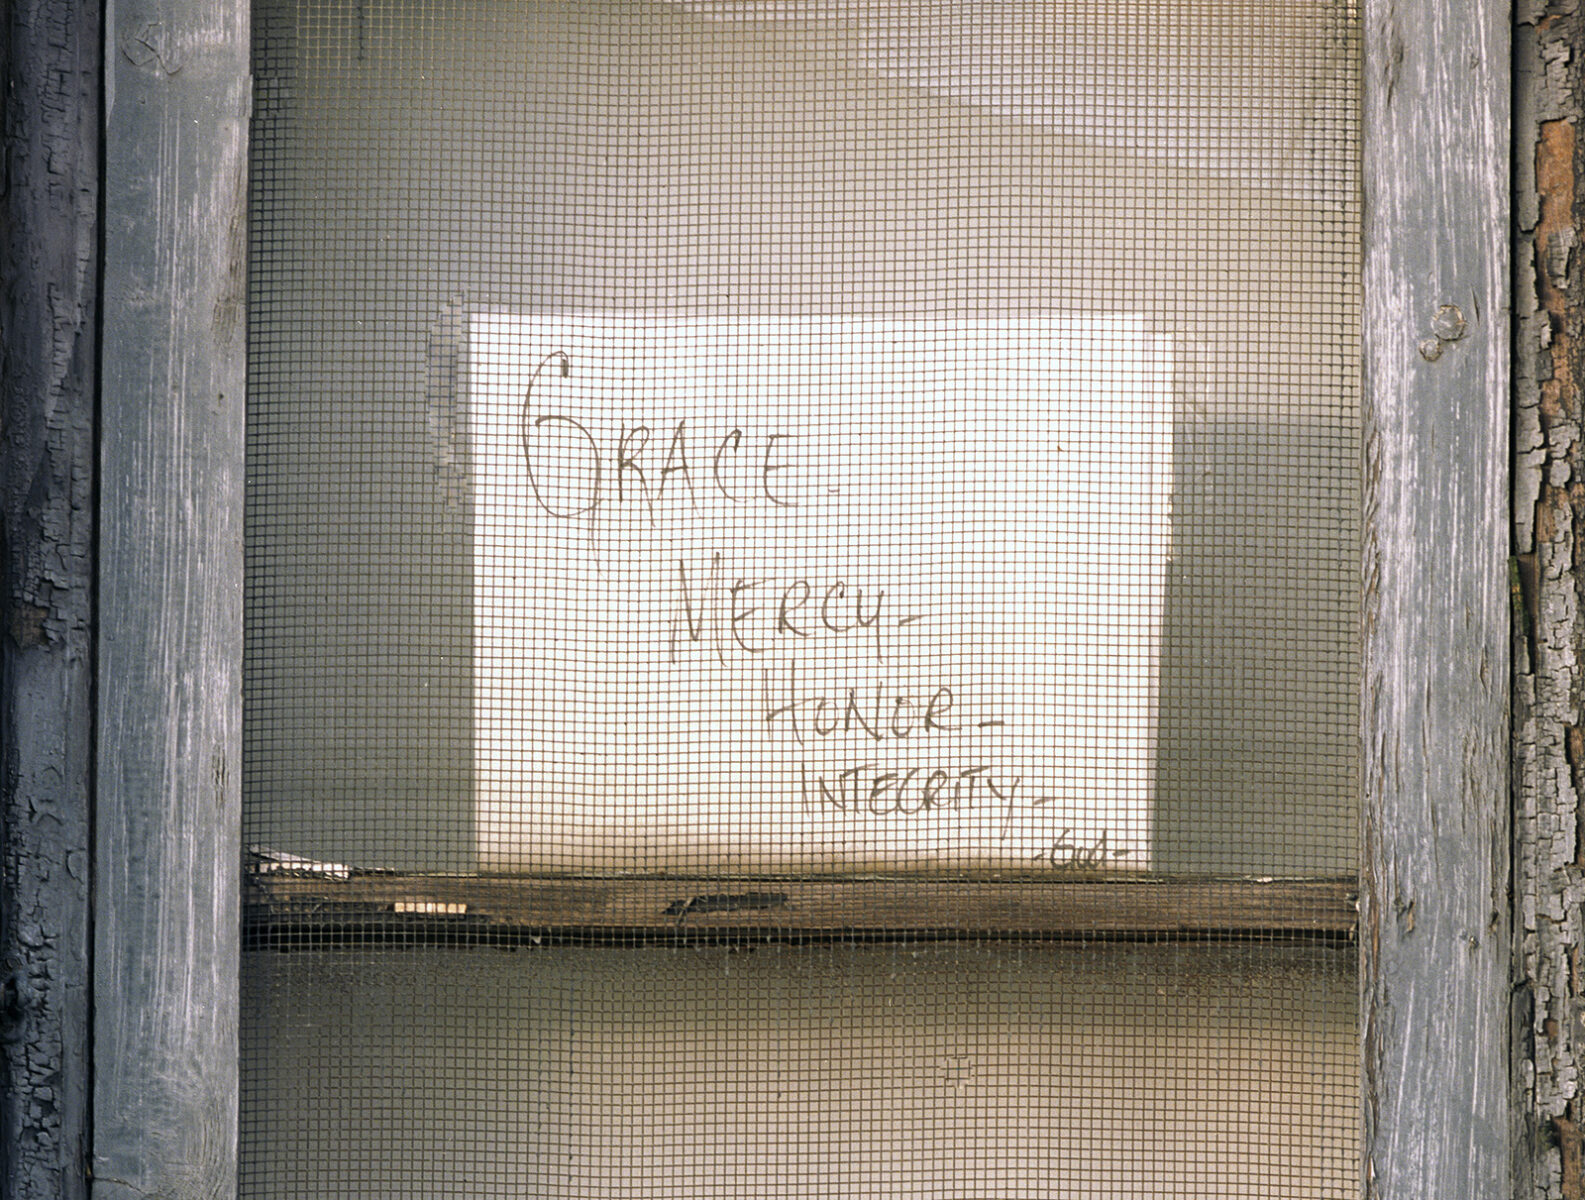 GRACE -
MERCY -
HONOR -
INTEGRITY -
- God -